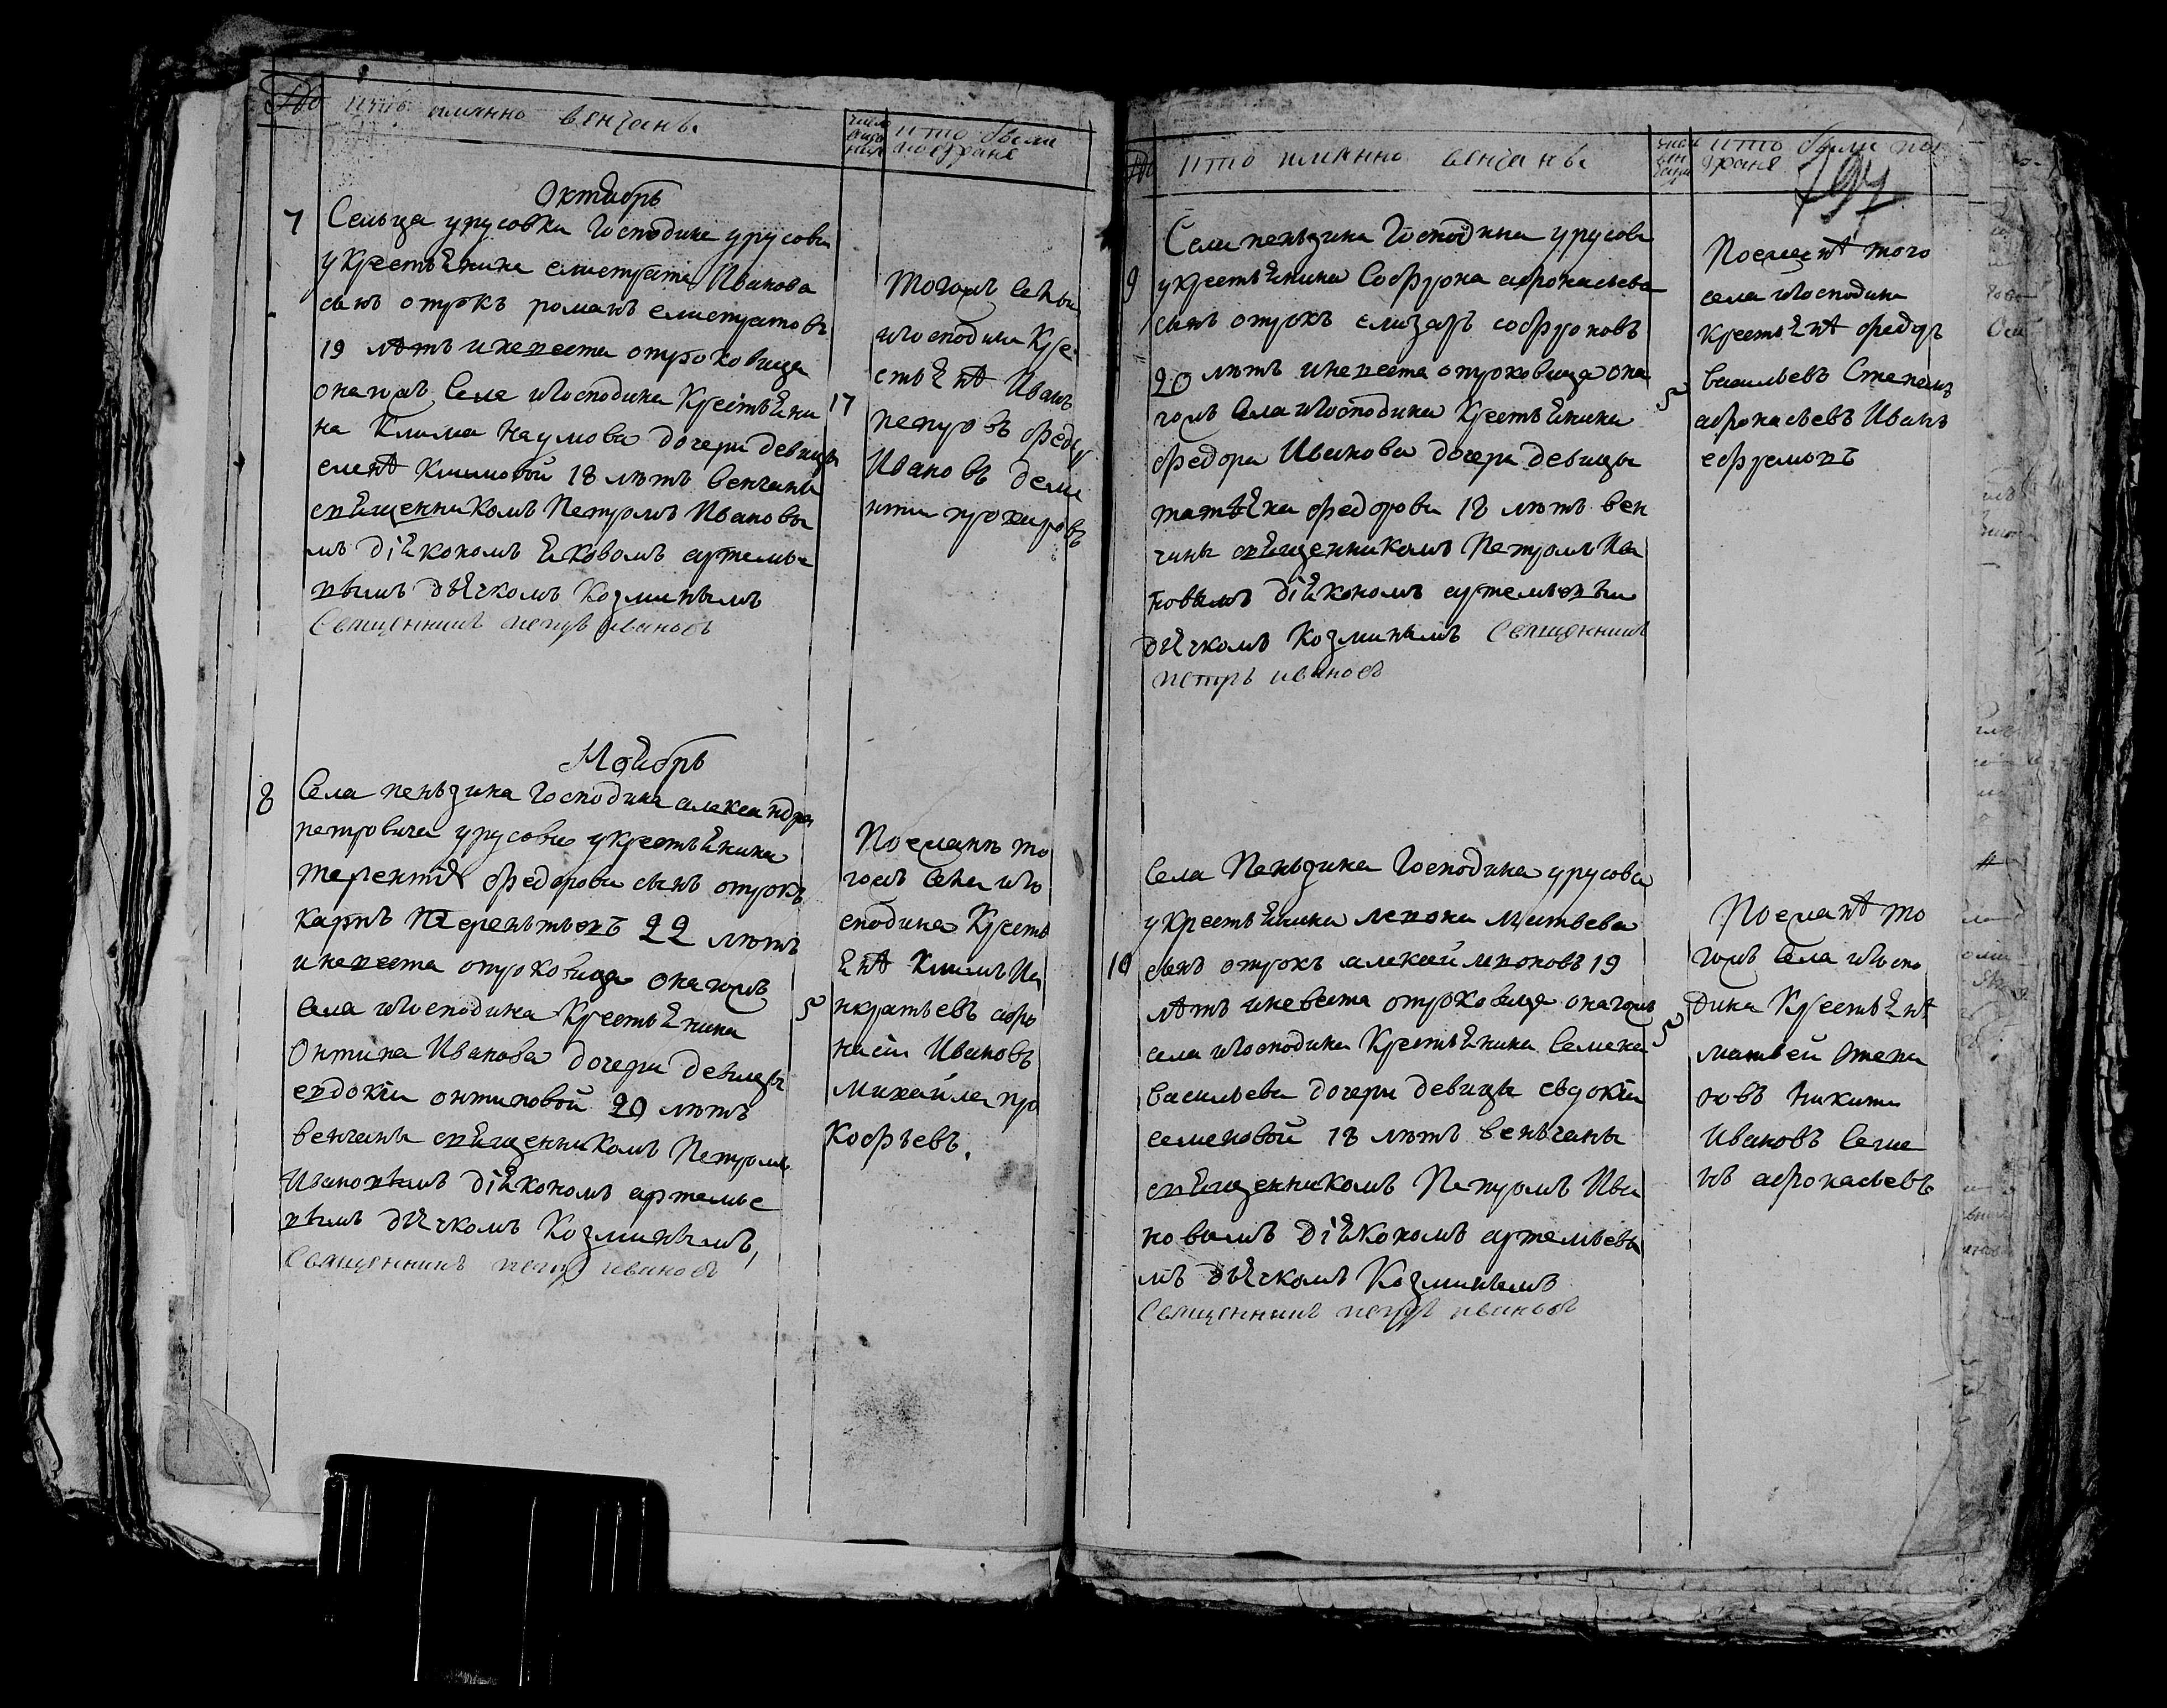 № кто имянно венчаны
число венча ния
кто были
поезжане
Октябрь
7 Сельца урусовки Господина урусова
у крестьянина елистрата Иванова
сынъ отрокъ романъ елистратовъ
19 лѣтъ и невеста отроковица
она тогожъ села и Господина крестьяни
на Клима Наумова дочери девицы
елены Климовой 18 лѣтъ венчаны
священникомъ Петромъ Ивановы
мъ діякономъ яковомъ артемье
вымъ дьячкомъ Козминымъ
Священникъ петръ ивановъ
17
тогожъ села
и господина кре
стьяня Иванъ
петровъ федоръ
Ивановъ
Ноябрь
8 Села пеньзина Господина александра
петровича урусова у крестьянина
терентія федорова сынъ отрокъ
карпъ терентьевъ 22 лѣтъ
и невеста отроковица она тогожъ
села и Господина крестьянина
Онтипа Иванова дочери девицы
евдокіи онтиповой 20 лѣтъ
венчаны священникомъ Петромъ
Ивановымъ діякономъ артемье
вымъ дьячкомъ Козминымъ,
Священникъ петръ ивановъ
5
Поезжаня то
гожъ села и го
сподина кресть
яня Климъ Па
нкратьевъ афо
насіи Ивановъ
Михайла про
кофьевъ.
№ кто имянно венчаны
кто были по
езжаня
194
9 Села пеньзина Господина урусова
у крестьянина Софрона афонасьева
сынъ отрокъ елизаръ софроновъ
20 лѣтъ и невеста отроковица она
тогожъ села и Господина крестьянина
федора Иванова дочери девицы
татьяна федорова 18 лѣтъ вен
чаны священникомъ Петромъ Ива
новымъ діякономъ артемьевы
дьячкомъ Козминымъ Священникъ
петръ ивановъ
5
Поезжаня того
села и Господина
крестьяня федоръ
васильевъ Степанъ
афонасьевъ Иванъ
ефремовъ
Села Пеньзина Господина урусова
у крестьянина левона Матвеева
10 сынъ отрокъ алексей левоновъ 19
лѣтъ и невеста отроковица она тогожъ
села и Господина крестьянина Семена
Васильева дочери девицы евдокіи
семеновой 18 лѣтъ веньчаны
священникомъ Петромъ Ива
новымъ діякономъ артемьевы
мъ дьячкомъ Козминымъ
Священникъ петръ ивановъ
5
Поезжаня то
гожъ села и Госпо
дина крестьяня
матвей степа
новъ Никита
Ивановъ Семе
нъ афонасьевъ